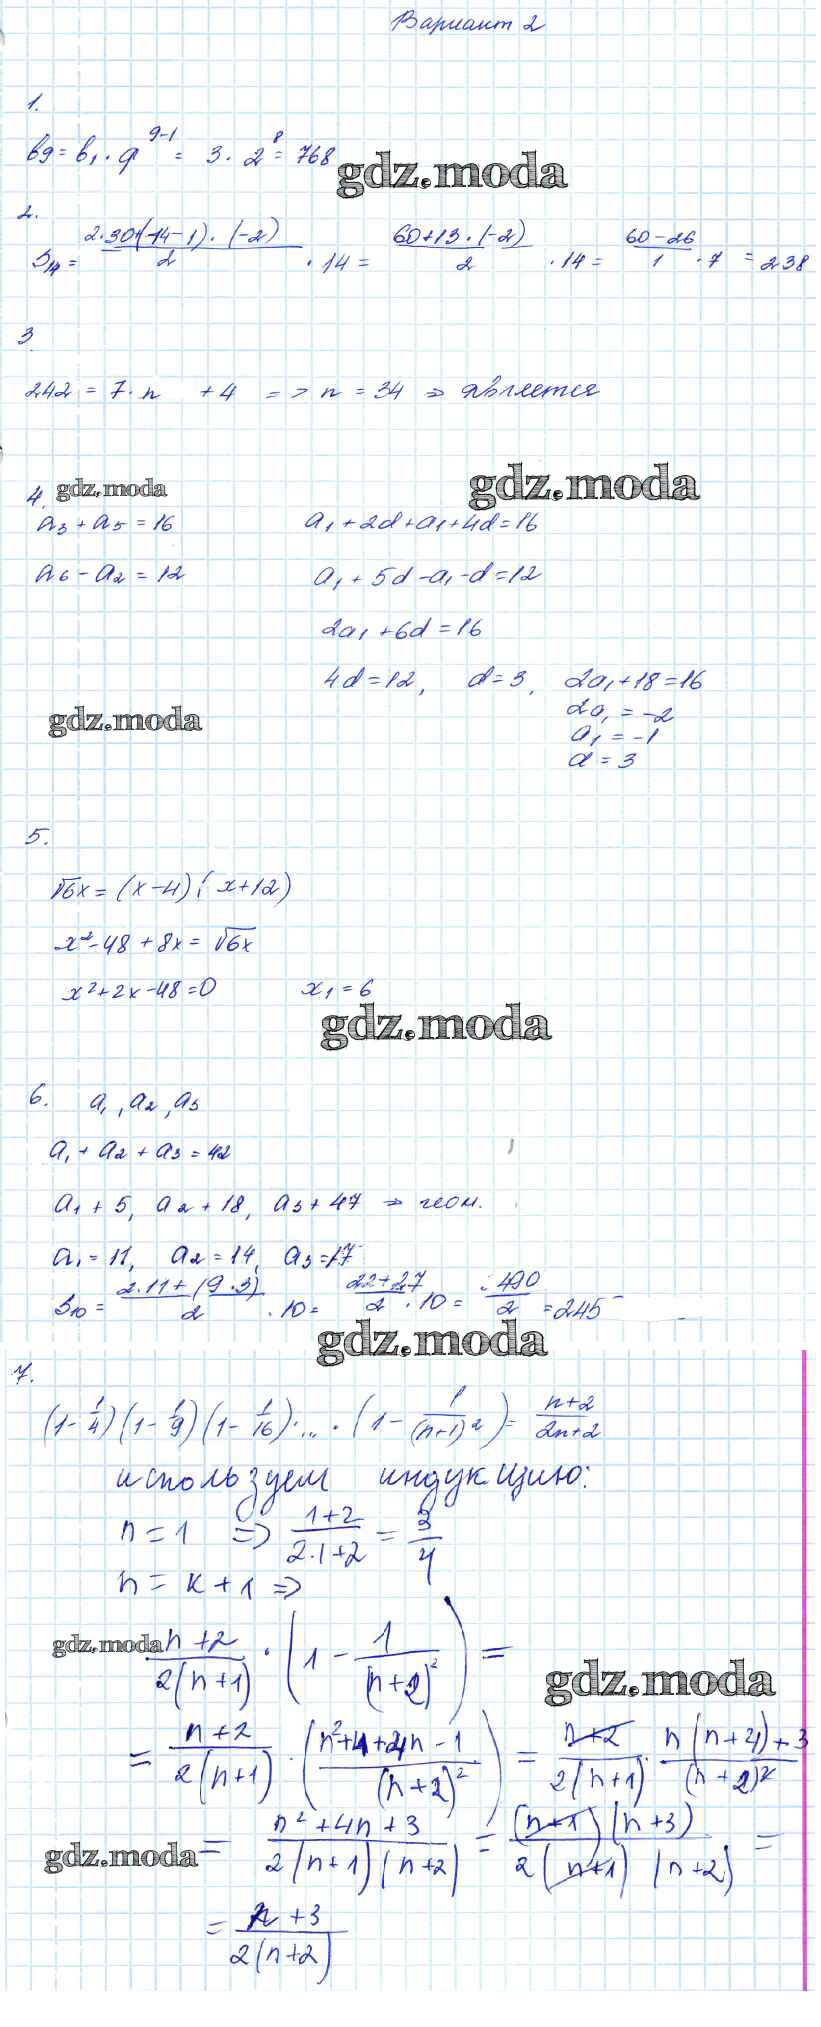 Вариант 2
1.
b9 = b₁ · q⁹⁻¹ = 3 · 2⁸ = 768
gdz.moda
2.
S₁₄ = (2·30+(14-1)·(-2))/2 · 14 = (60+13·(-2))/2 · 14 = (60-26)/1 · 7 = 238
3
242 = 7·n + 4 => n = 34 => является
gdz.moda
4. gdz.moda
a₃ + a₅ = 16 a₁ + 2d + a₁ + 4d = 16
a₆ - a₂ = 12 a₁ + 5d - a₁ - d = 12
2a₁ + 6d = 16
4d = 12, d = 3, 2a₁ + 18 = 16
gdz.moda 2a₁ = -2
a₁ = -1
d = 3
5.
√6x = (x-4)(x+12)
x² - 48 + 8x = √6x
x² + 2x - 48 = 0 x₁ = 6
gdz.moda
6. a₁, a₂, a₃
a₁ + a₂ + a₃ = 42
a₁ + 5, a₂ + 18, a₃ + 47 => геом.
a₁ = 11, a₂ = 14, a₃ = 17
S₁₀ = (2·11+(9·3))/2 · 10 = (22+27)/2 · 10 = 490/2 = 245
gdz.moda
7.
(1-1/4)(1-1/9)(1-1/16)·...·(1-1/(n+1)²) = (n+2)/(2n+2)
используем индукцию:
n = 1 => (1+2)/(2·1+2) = 3/4
n = к + 1 =>
gdz.moda (n+2)/(2(n+1)) · (1 - 1/(n+2)²) =
gdz.moda
= (n+2)/(2(n+1)) · ((n²+4+4n-1)/(n+2)²) = (n+2)/(2(n+1)) · (n(n+4)+3)/(n+2)²
gdz.moda = (n²+4n+3)/(2(n+1)(n+2)) = ((n+1)(n+3))/(2(n+1)(n+2)) =
= (n+3)/(2(n+2))